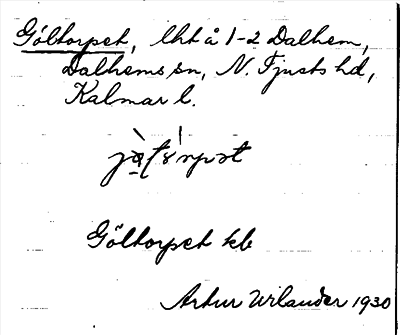 Göltorpet, lht å 1-2 Dalhem,
Dalhems sn, N. Tjusts hd,
Kalmar l.
Göltorpet kb
Artur Urlander 1930